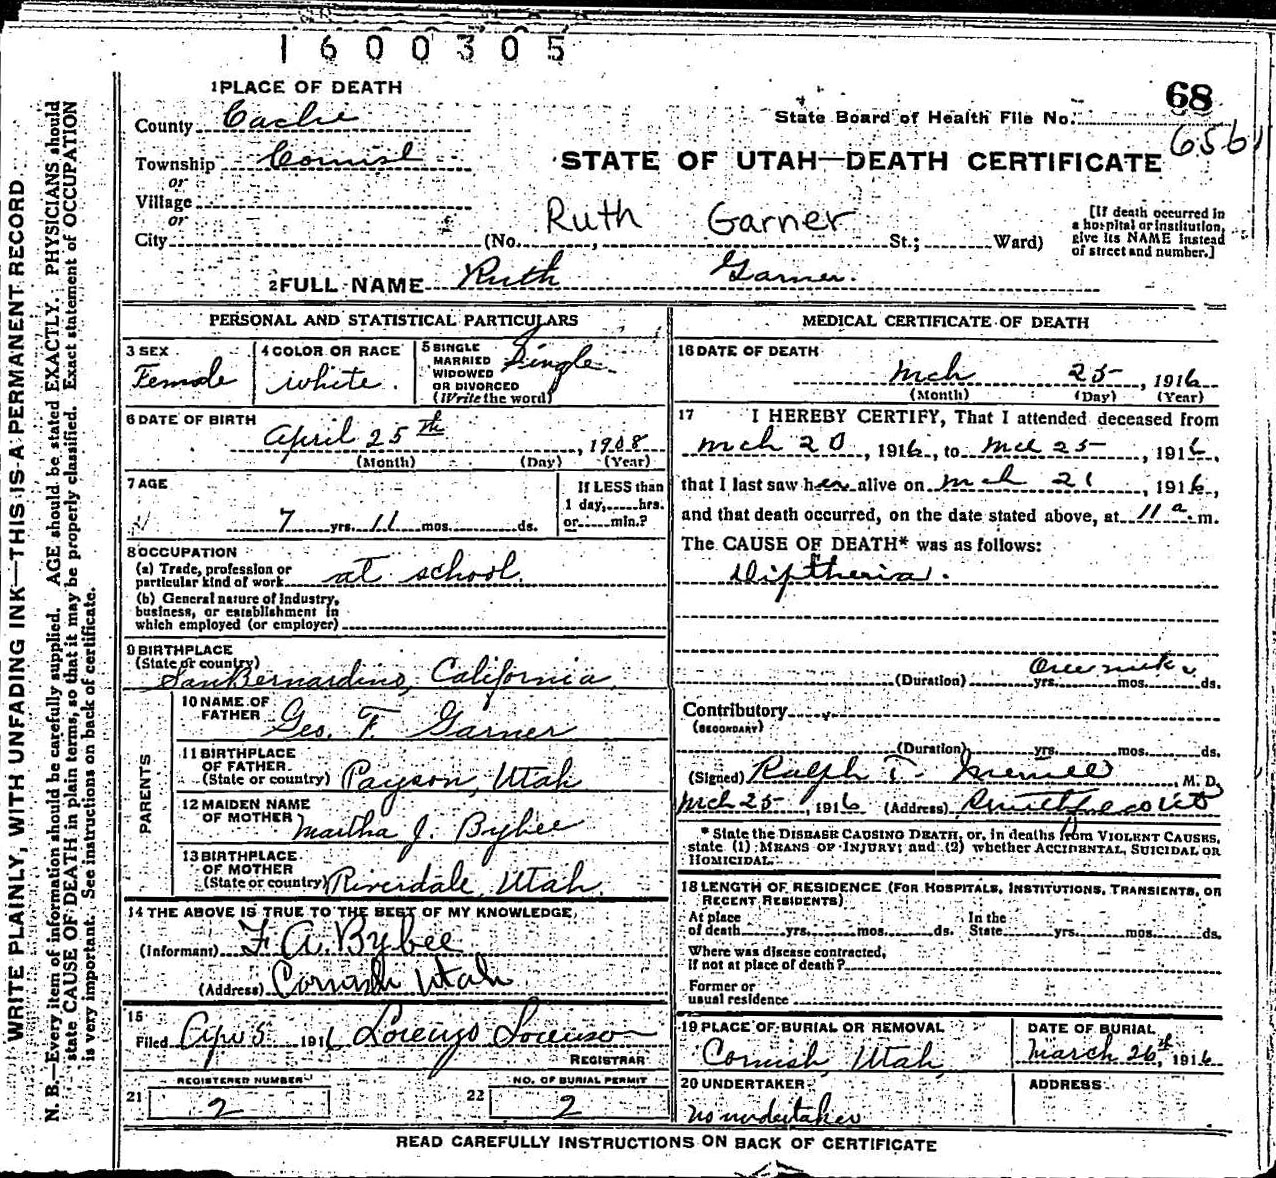 1600305
1 PLACE OF DEATH
68
County Cache
State Board of Health File No.
656
Township Cornish
STATE OF UTAH—DEATH CERTIFICATE
or
Village
or
Ruth Garner
City (No. , St.; Ward)
[If death occurred in
a hospital or institution,
give its NAME instead
of street and number.]
2 FULL NAME Ruth Garner.
PERSONAL AND STATISTICAL PARTICULARS
3 SEX
Female
4 COLOR OR RACE
white.
5 SINGLE
MARRIED
WIDOWED
OR DIVORCED
(Write the word)
Single.
6 DATE OF BIRTH
April 25th, 1908
(Month) (Day) (Year)
7 AGE
7 yrs. 11 mos. ds.
If LESS than
1 day, hrs.
or min.?
8 OCCUPATION
(a) Trade, profession or
particular kind of work at school.
(b) General nature of industry,
business, or establishment in
which employed (or employer)
9 BIRTHPLACE
(State or country)
San Bernardino, California,
PARENTS
10 NAME OF
FATHER Geo. F. Garner
11 BIRTHPLACE
OF FATHER
(State or country) Payson, Utah
12 MAIDEN NAME
OF MOTHER Martha J. Bybee
13 BIRTHPLACE
OF MOTHER
(State or country) Riverdale, Utah.
14 THE ABOVE IS TRUE TO THE BEST OF MY KNOWLEDGE,
(Informant) F. A. Bybee
(Address) Cornish Utah
15
Filed Apr 5 1916 Lorenzo
REGISTRAR
REGISTERED NUMBER
21 2
NO. OF BURIAL PERMIT
22 2
MEDICAL CERTIFICATE OF DEATH
16 DATE OF DEATH
Mch 25, 1916
(Month) (Day) (Year)
17 I HEREBY CERTIFY, That I attended deceased from
Mch 20, 1916, to Mch 25, 1916,
that I last saw her alive on Mch 21, 1916,
and that death occurred, on the date stated above, at 11 a. m.
The CAUSE OF DEATH* was as follows:
Diptheria.
One week
(Duration) yrs. mos. ds.
Contributory
(SECONDARY)
(Duration) yrs. mos. ds.
(Signed) Ralph T. M. D.
Mch 25, 1916 (Address)
* State the DISEASE CAUSING DEATH, or, in deaths from VIOLENT CAUSES,
state (1) MEANS OF INJURY; and (2) whether ACCIDENTAL, SUICIDAL OR
HOMICIDAL.
18 LENGTH OF RESIDENCE (FOR HOSPITALS, INSTITUTIONS, TRANSIENTS, OR
RECENT RESIDENTS)
At place
of death yrs. mos. ds.
In the
State yrs. mos. ds.
Where was disease contracted,
if not at place of death?
Former or
usual residence
19 PLACE OF BURIAL OR REMOVAL
Cornish, Utah,
DATE OF BURIAL
March 26th, 1916
20 UNDERTAKER
no undertaker
ADDRESS
READ CAREFULLY INSTRUCTIONS ON BACK OF CERTIFICATE
WRITE PLAINLY, WITH UNFADING INK—THIS IS A PERMANENT RECORD
N. B.—Every item of information should be carefully supplied. AGE should be stated EXACTLY. PHYSICIANS should
state CAUSE OF DEATH in plain terms, so that it may be properly classified. Exact statement of OCCUPATION
is very important. See instructions on back of certificate.